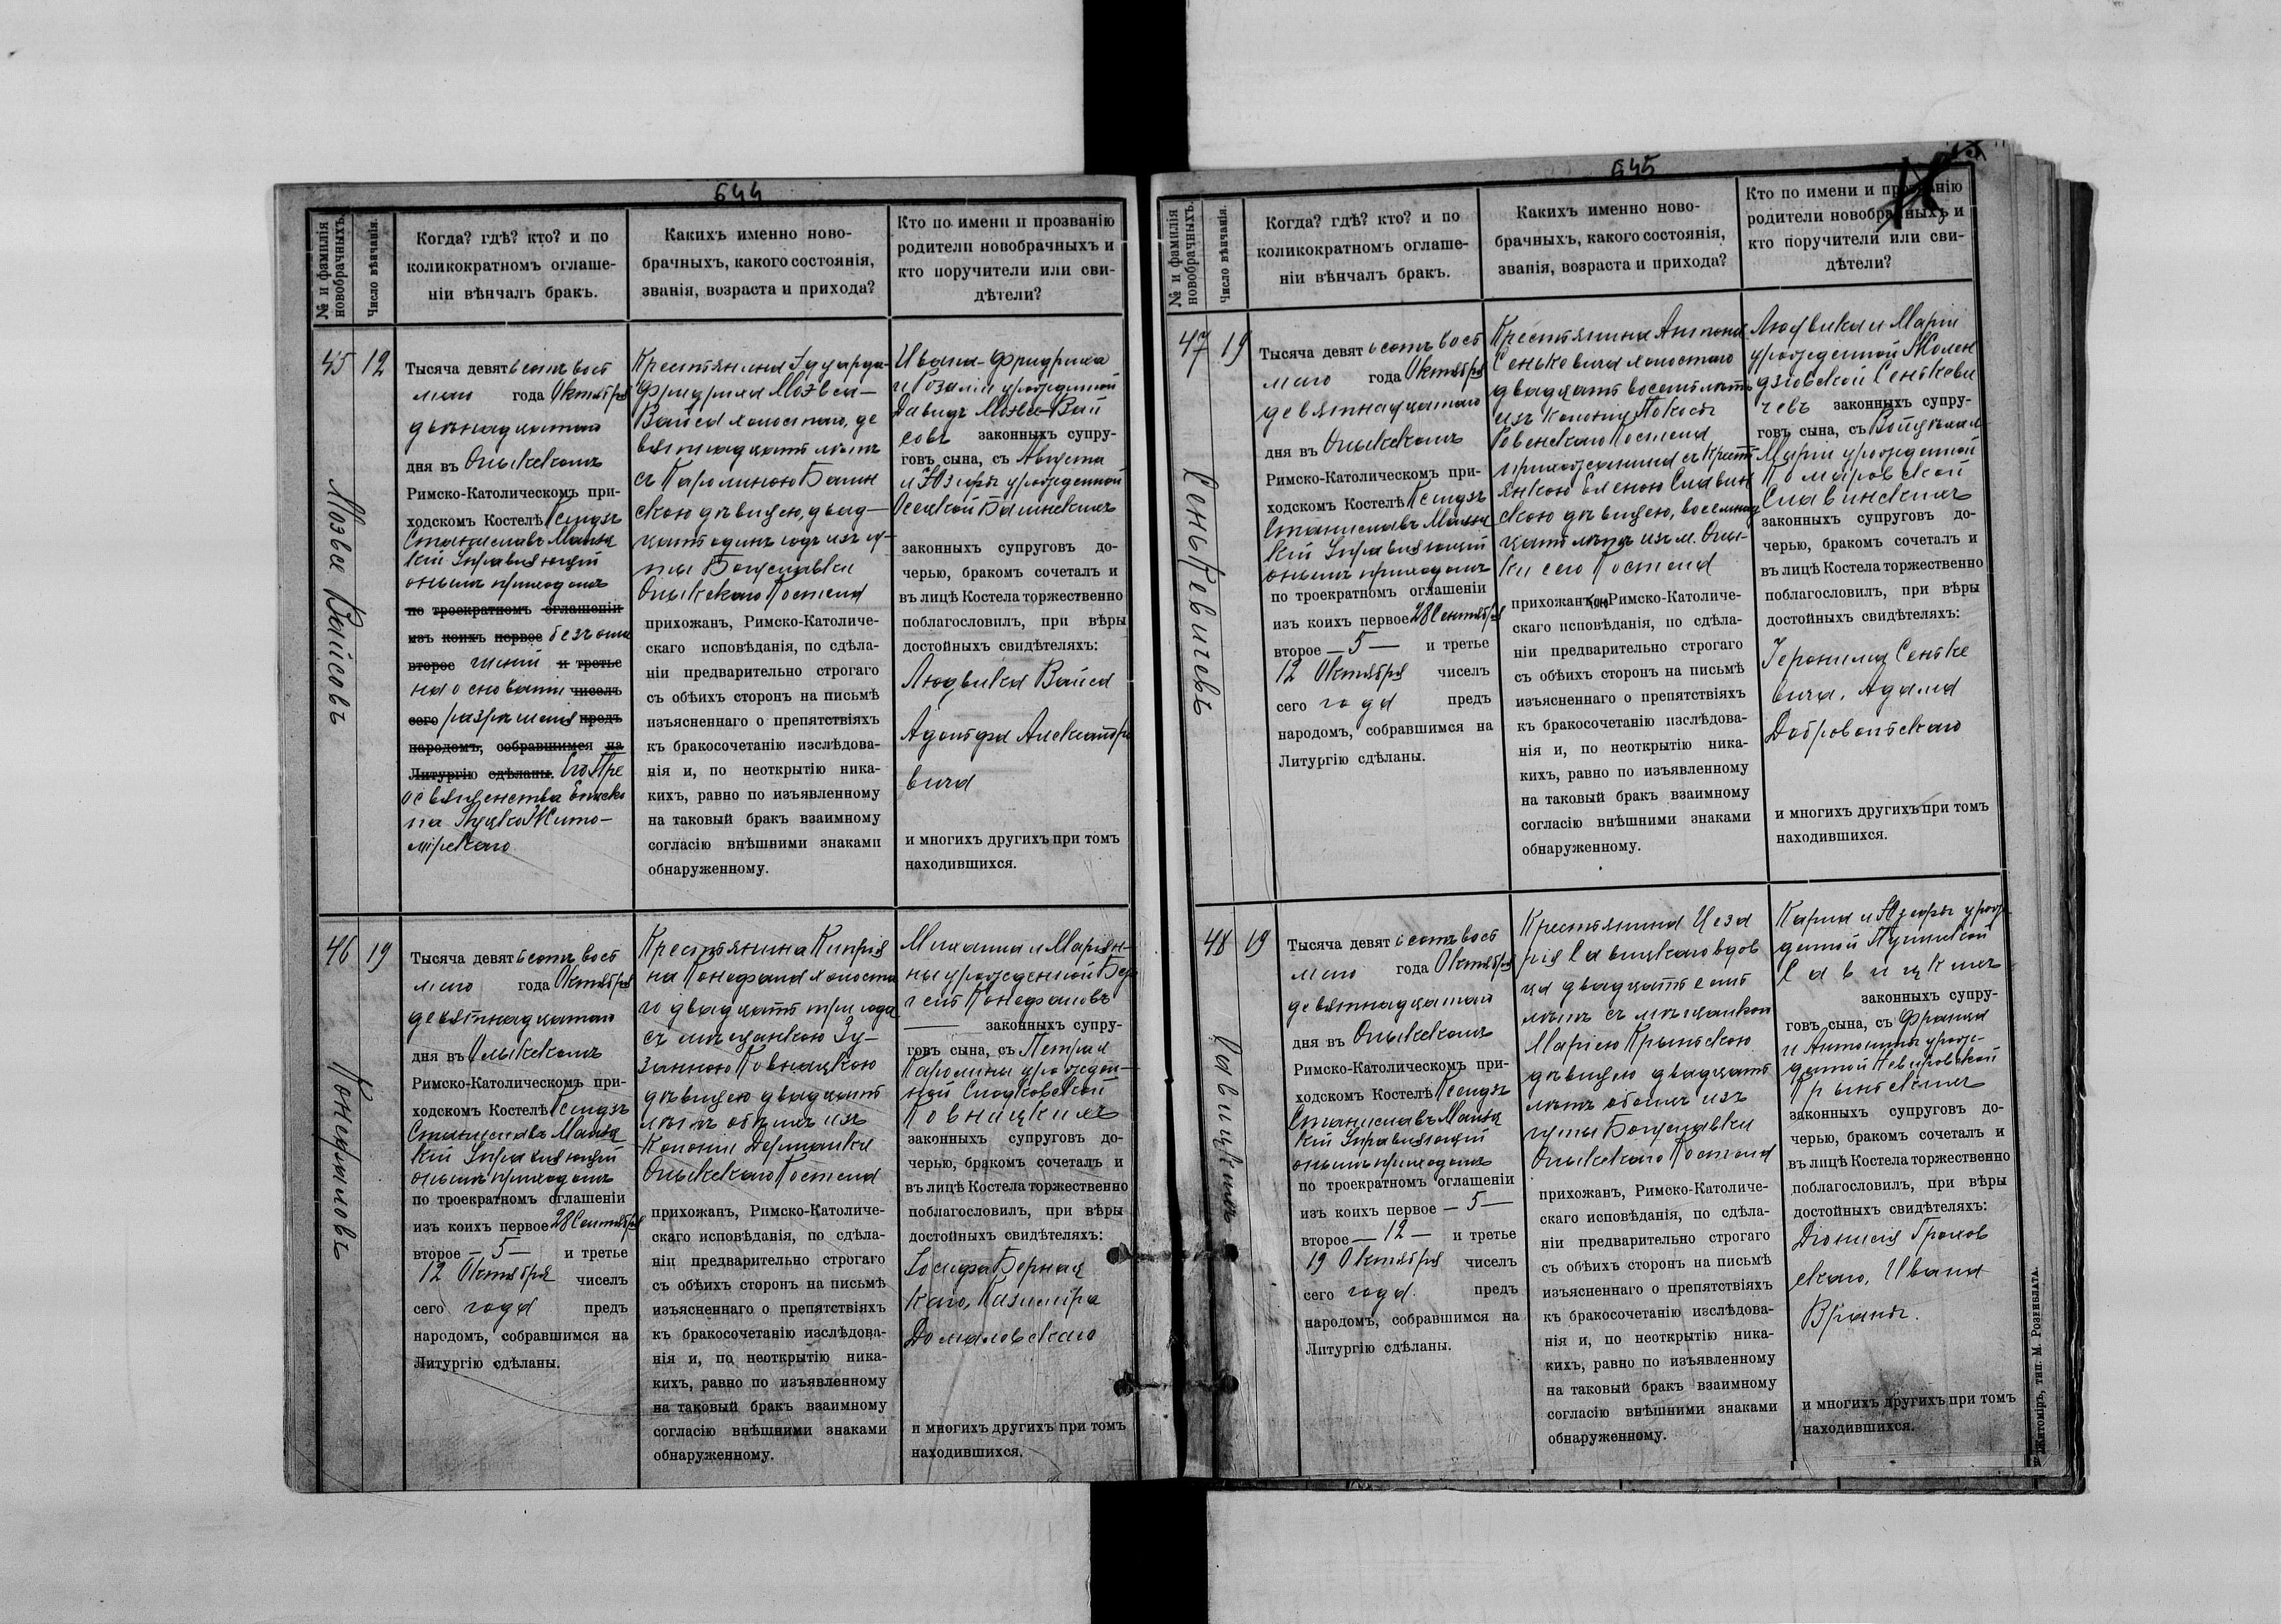 644
№ и фамилія новобрачныхъ.
Число вѣнчанія.
Когда? гдѣ? кто? и по
коликократномъ оглаше-
ніи вѣнчалъ бракъ.
Какихъ именно ново-
брачныхъ, какого состоянія,
званія, возраста и прихода?
Кто по имени и прозванію
родители новобрачныхъ и
кто поручители или сви-
дѣтели?
45
12
Тысяча девятьсотъ вось
маго года Октября
двѣнадцатаго
дня въ Олыкскомъ
Римско-Католическомъ при-
ходскомъ Костелѣ Ксендзъ
Станиславъ
кій Управляющій
онымъ приходомъ
по троекратномъ оглашеніи
изъ коихъ первое безъ огла
второе шеній и третье
на основаніи чиселъ
сего разрѣшенія предъ
народомъ, собравшимся на
Литургію сдѣланы. Его Пре
освященства Еписко
па Луцко Жито-
мірскаго
Крестьянина Эдуарда-
Фридриха
Вайса холостаго, де
вятнадцать лѣтъ
съ Каролиною Балин
скою дѣвицею, двад-
цать одинъ годъ изъ ц-
ны Богуславки
Олыкскаго Костела
прихожан, Римско-Католиче-
скаго исповѣданія, по сдѣла-
ніи предварительно строгаго
съ обѣихъ сторонъ на письмѣ
изъясненнаго о препятствіяхъ
къ бракосочетанію изслѣдова-
нія и, по неоткрытію ника-
кихъ, равно по изъявленному
на таковый бракъ взаимному
согласію внѣшними знаками
обнаруженному.
Ивана-Фридриха
и Розаліи урожденной
Давидъ Вай
совъ законныхъ супру-
говъ сына, съ Августа
и Юзефы урожденной
Осецкой Балинскихъ
законныхъ супруговъ до-
черью, бракомъ сочеталъ и
въ лицѣ Костела торжественно
поблагословилъ, при вѣры
достойныхъ свидѣтеляхъ:
Людвика Вайса
Адольфа Александро
вича
и многихъ другихъ при томъ
находившихся.
46
19
Тысяча девятьсотъ вось
маго года Октября
девятнадцатаго
дня въ Олыкскомъ
Римско-Католическомъ при-
ходскомъ Костелѣ Ксендзъ
Станиславъ
кій Управляющій
онымъ приходомъ
по троекратномъ оглашеніи
изъ коихъ первое 28 Сентября
второе — 5 — и третье
12 Октября чиселъ
сего года предъ
народомъ, собравшимся на
Литургію сдѣланы.
Крестьянина Кипрія
на Конефала холоста
го двадцать три года
съ мѣщанкою Зу-
занною Ковницкою
дѣвицею двадцать
лѣтъ обоихъ изъ
Колоніи Дерманки
Олыкскаго Костела
прихожан, Римско-Католиче-
скаго исповѣданія, по сдѣла-
ніи предварительно строгаго
съ обѣихъ сторонъ на письмѣ
изъясненнаго о препятствіяхъ
къ бракосочетанію изслѣдова-
нія и, по неоткрытію ника-
кихъ, равно по изъявленному
на таковый бракъ взаимному
согласію внѣшними знаками
обнаруженному.
Михаила и Маріан-
ны урожденной
Конефаловъ
законныхъ супру-
говъ сына, съ Петра и
Каролины урожден-
ной Сладковской
Ковницкихъ
законныхъ супруговъ до-
черью, бракомъ сочеталъ и
въ лицѣ Костела торжественно
поблагословилъ, при вѣры
достойныхъ свидѣтеляхъ:
Іосифа Бернац
каго, Казиміра
Домаловскаго
и многихъ другихъ при томъ
находившихся.
645
№ и фамилія новобрачныхъ.
Число вѣнчанія.
Когда? гдѣ? кто? и по
коликократномъ оглаше-
ніи вѣнчалъ бракъ.
Какихъ именно ново-
брачныхъ, какого состоянія,
званія, возраста и прихода?
Кто по имени и прозванію
родители новобрачныхъ и
кто поручители или сви-
дѣтели?
47
19
Сенькевичевъ
Тысяча девятьсотъ вось
маго года Октября
девятнадцатаго
дня въ Олыкскомъ
Римско-Католическомъ при-
ходскомъ Костелѣ Ксендзъ
Станиславъ
кій Управляющій
онымъ приходомъ
по троекратномъ оглашеніи
изъ коихъ первое 28 Сентября
второе — 5 — и третье
12 Октября чиселъ
сего года предъ
народомъ, собравшимся на
Литургію сдѣланы.
Крестьянина Антона
Сенькевича холостаго
двадцать восемь лѣтъ
изъ колоніи Покосы
Ровенскаго Костела
прихожанина съ крест
янкою Еленою Славин
скою дѣвицею, восемнад
цать лѣтъ изъ м. Олы-
ки сего Костела
прихожанкою Римско-Католиче-
скаго исповѣданія, по сдѣла-
ніи предварительно строгаго
съ обѣихъ сторонъ на письмѣ
изъясненнаго о препятствіяхъ
къ бракосочетанію изслѣдова-
нія и, по неоткрытію ника-
кихъ, равно по изъявленному
на таковый бракъ взаимному
согласію внѣшними знаками
обнаруженному.
Людвика и Маріи
урожденной
Сенькеви
чевъ законныхъ супру-
говъ сына, съ Войцѣха и
Маріи урожденной
Комаровской
Славинскихъ
законныхъ супруговъ до-
черью, бракомъ сочеталъ и
въ лицѣ Костела торжественно
поблагословилъ, при вѣры
достойныхъ свидѣтеляхъ:
Іеронима Сеньке
вича, Адама
Добровольскаго
и многихъ другихъ при томъ
находившихся.
48
19
Савицкихъ
Тысяча девятьсотъ вось
маго года Октября
девятнадцатаго
дня въ Олыкскомъ
Римско-Католическомъ при-
ходскомъ Костелѣ Ксендзъ
Станиславъ
кій Управляющій
онымъ приходомъ
по троекратномъ оглашеніи
изъ коихъ первое — 5 —
второе — 12 — и третье
19 Октября чиселъ
сего года. предъ
народомъ, собравшимся на
Литургію сдѣланы.
Крестьянина Цеза
рія Савицкаго вдов
ца двадцать семь
лѣтъ съ мѣщанкою
Маріею Крыньскою
дѣвицею двадцать
лѣтъ обоихъ изъ
Богуславки
Олыкскаго Костела
прихожан, Римско-Католиче-
скаго исповѣданія, по сдѣла-
ніи предварительно строгаго
съ обѣихъ сторонъ на письмѣ
изъясненнаго о препятствіяхъ
къ бракосочетанію изслѣдова-
нія и, по неоткрытію ника-
кихъ, равно по изъявленному
на таковый бракъ взаимному
согласію внѣшними знаками
обнаруженному.
Карла и Юзефы урож-
денной
Савицкихъ
законныхъ супру-
говъ, сына, съ Франца
и Антонины урож-
денной
Крыньскихъ
законныхъ супруговъ до-
черью, бракомъ сочеталъ и
въ лицѣ Костела торжественно
поблагословилъ, при вѣры
достойныхъ свидѣтеляхъ:
Діонисія Грохов
скаго, Ивана
и многихъ другихъ при томъ
находившихся.
Житоміръ, тип. М. Розенблата.